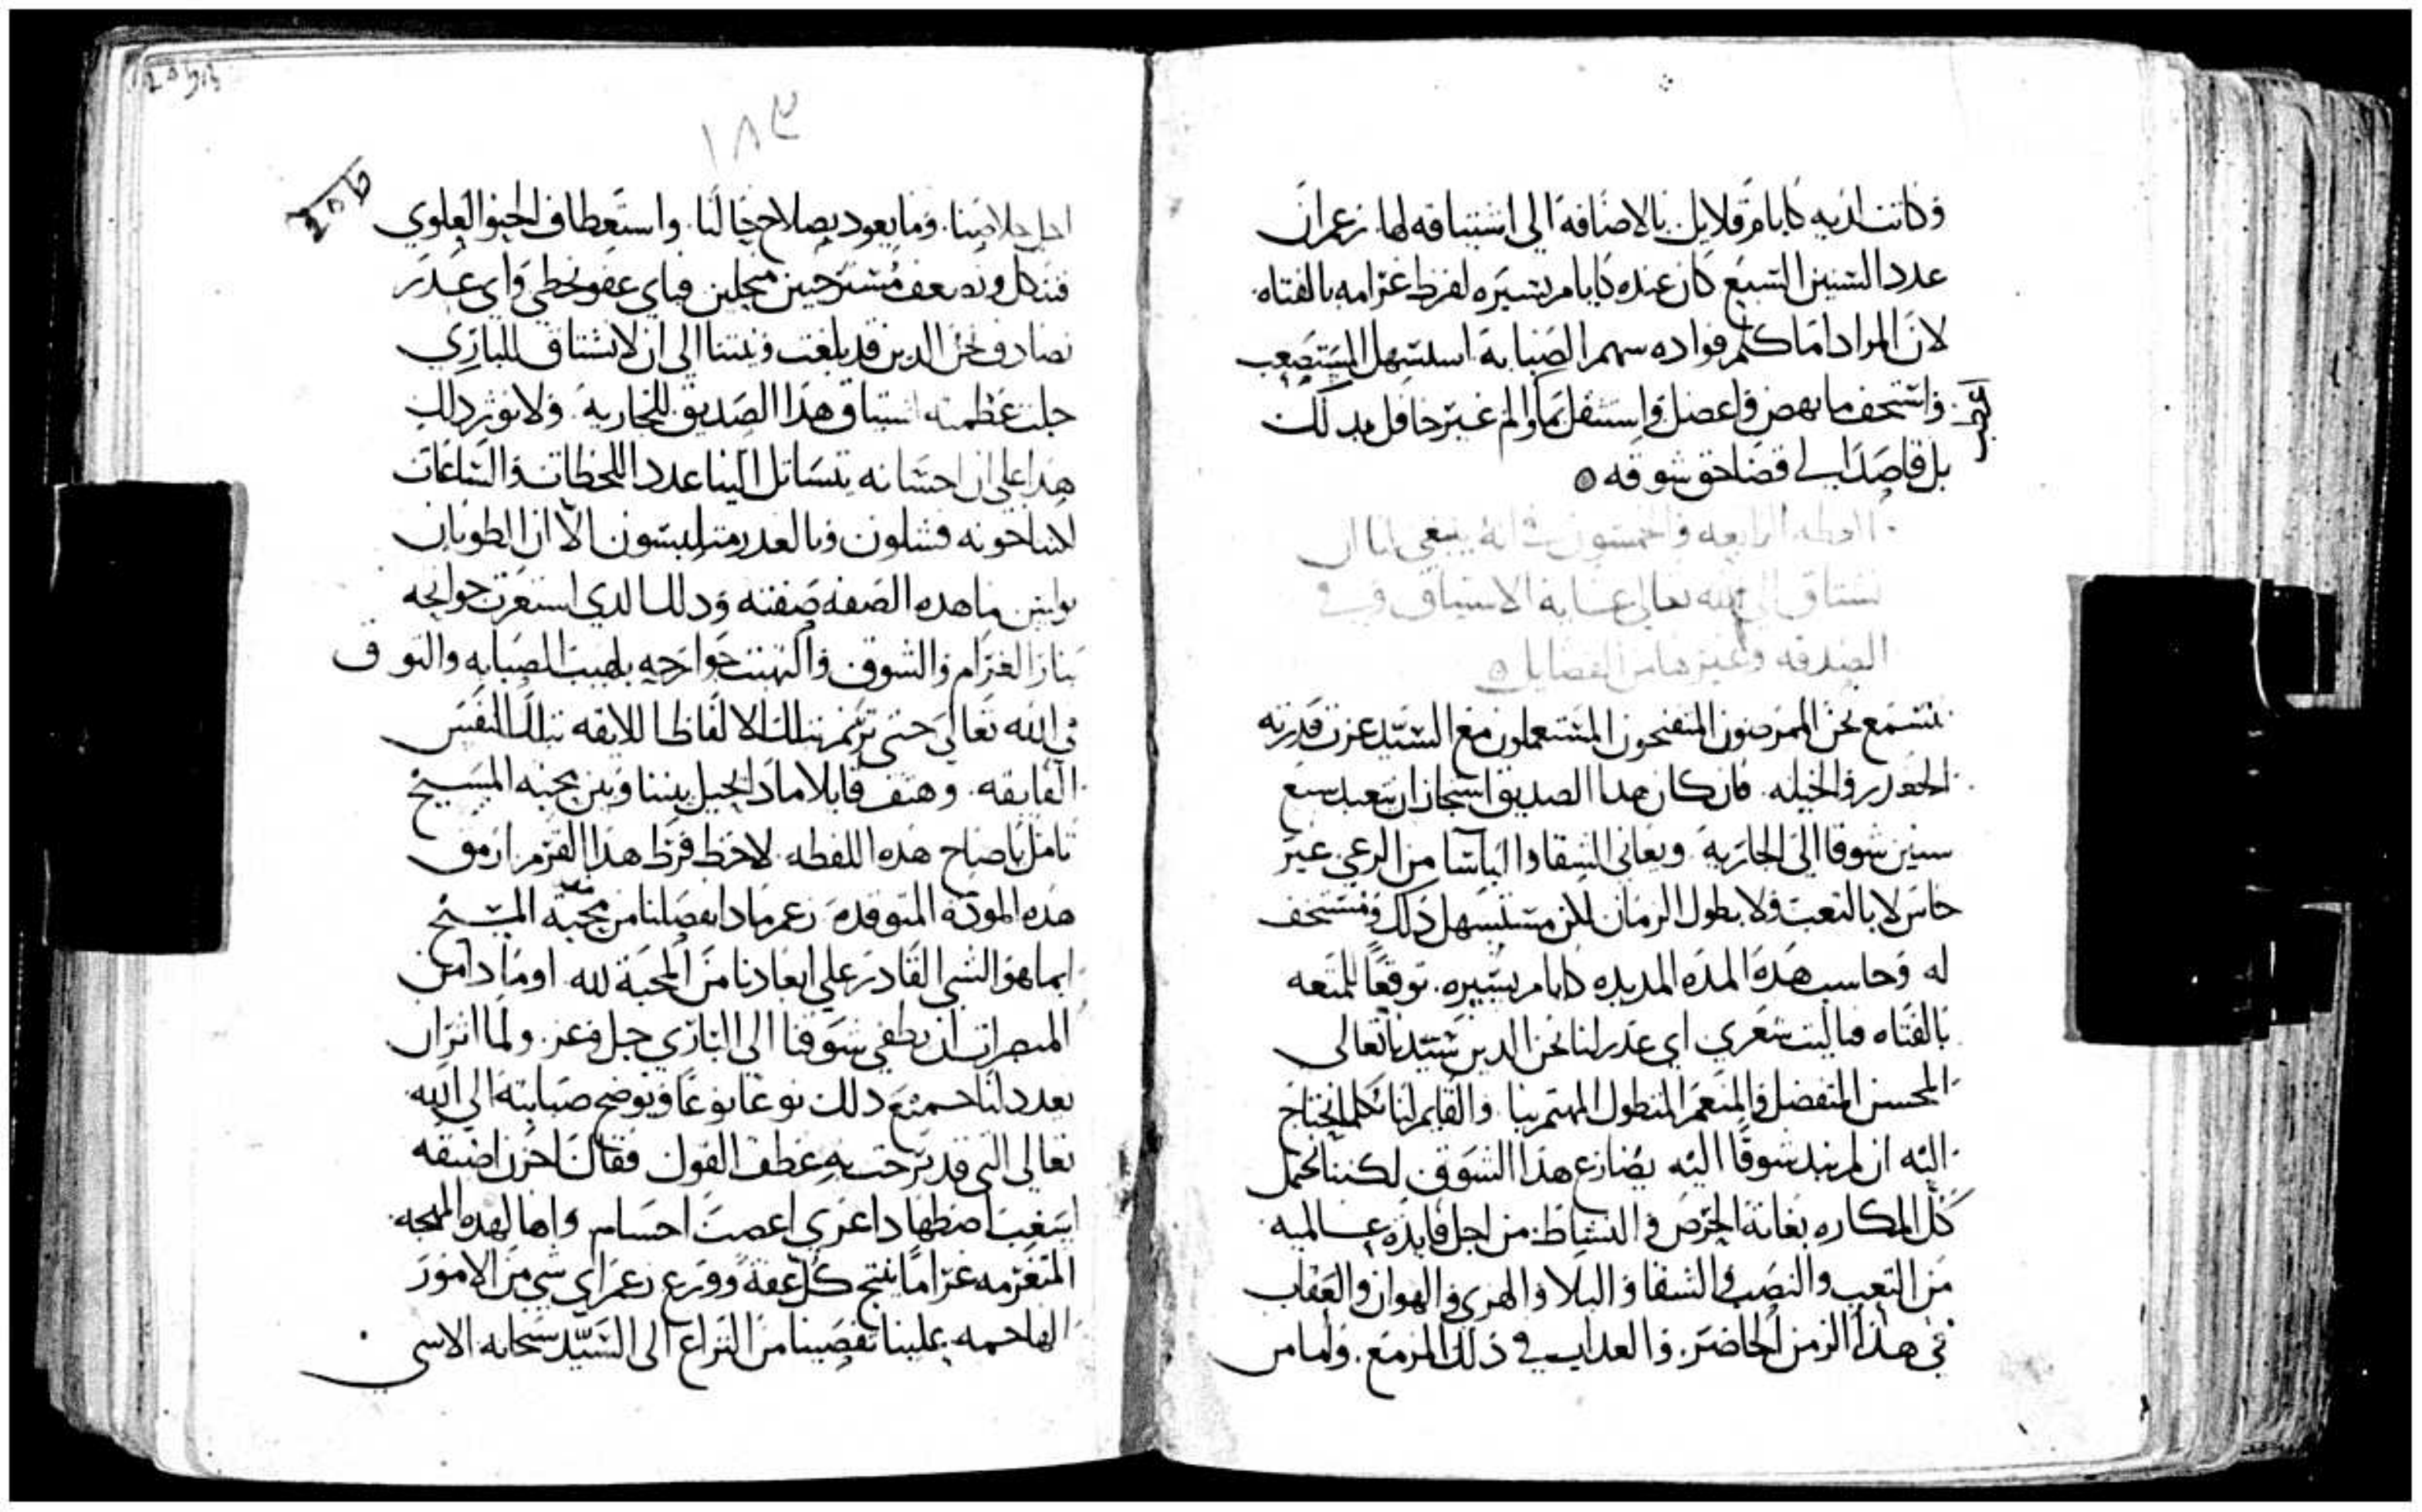 وكانت لديه كايام قلايل بالاضافه الي اشتياقه لها. زعم ان
عدد السنين السبع كان عنده كايام يسيره لفرط غرامه بالفتاه.
لان المراد اما كلم فواده سهم الصبابة استسهل المستصعب
واستخف ما بهض واعضل واستقل بما والم غير حافل بدلك
بل قاصدا الي قضا حق شوقه
العظه الرابعه والخمسون في انه ينبغي لنا ان
نشتاق الي الله تعالي غايه الاشتياق وفي
الصدقه وغيرها من الفضايل
نستمع نحن الممرضون المتفنحون المستعملون مع السيد عزت قدرته
والحيله. فان كان هدا الصديق استجاز ان يتعبد سبع
سنين شوقا الي الجاريه. ويعاني الشقا والباسا من الرعي غير
حاس لا بالتعب ولا بطول الزمان لكن مستسهل دلك ومستخف
له وحاسب هده المده المديده كايام يسيره. توقعا لمتعه
بالفتاه فياليت شعري اي عدر لنا نحن الدين سيدنا تعالي
المحسن المتفضل المنعم المتطول المهتم بنا. والقايم لنا بكلما نحتاج
اليه ان لم نبد شوقا اليه يضارع هذا الشوق لكننا نحتمل
كل المكاره بغاية الحرص والنشاط من اجل فايده عالميه
من التعب والنصب والشقا والبلا والهزي والهوان والعقاب
في هذا الزمن الحاضر. والعداب في دلك المزمع. واما من
١٨٣
اجل خلاصنا. وما يعود بصلاح حالنا. واستعطاف الحنو العلوي
فنتكل ونضعف مسترخين منحلين فباي عفو نحظي واي عدر
نصادف نحن الدين قد بلغت ونيتنا الي ان لا نشتاق للباري
جلت عظمته اشتياق هذا الصديق للجاريه. ولا نوثر دلك
هدا علي ان احسانه يتسابل الينا عدد اللحظات والساعات
لكننا خونه فشلون وبالعدر متلبسون الا ان الطوبان
بولس ما هده الصفه صفته ودلك الدي استعرت جوانحه
بنار الغرام والشوق والتهبت جوارحه بلهيب الصبابه والتوق
في الله تعالي حتي ترنم بتلك الالفاظ اللايقه بتلك النفس
الفايقه. وهتف قايلا مادا يحيل بيننا وبين محبه المسيح
تامل يا صاح هده اللفظه. لاحظ فرط هدا القرم ارمق
هده المودة المتوقده. زعم مادا يفصلنا من محبة المسيح
ايما هو الشي القادر علي ابعادنا من المحبة لله. او مادا من
المبصرات ان يطفي شوقنا الي الباري جل وعز. ولما اثر ان
يعدد لنا جميع دلك نوعا نوعا ويوضح صبابته الي الله
تعالي التي قد برحت به عطف القول فقال احزن اضيقه
اسغب اضطهاد اعري اعصت احسام واها لهده المهجه
المتغرمه غراما ينتج كل عفة وورع زعم اي شي من الامور
الهاجمه علينا تقصينا من النزاع الي السيد سبحانه الاسي